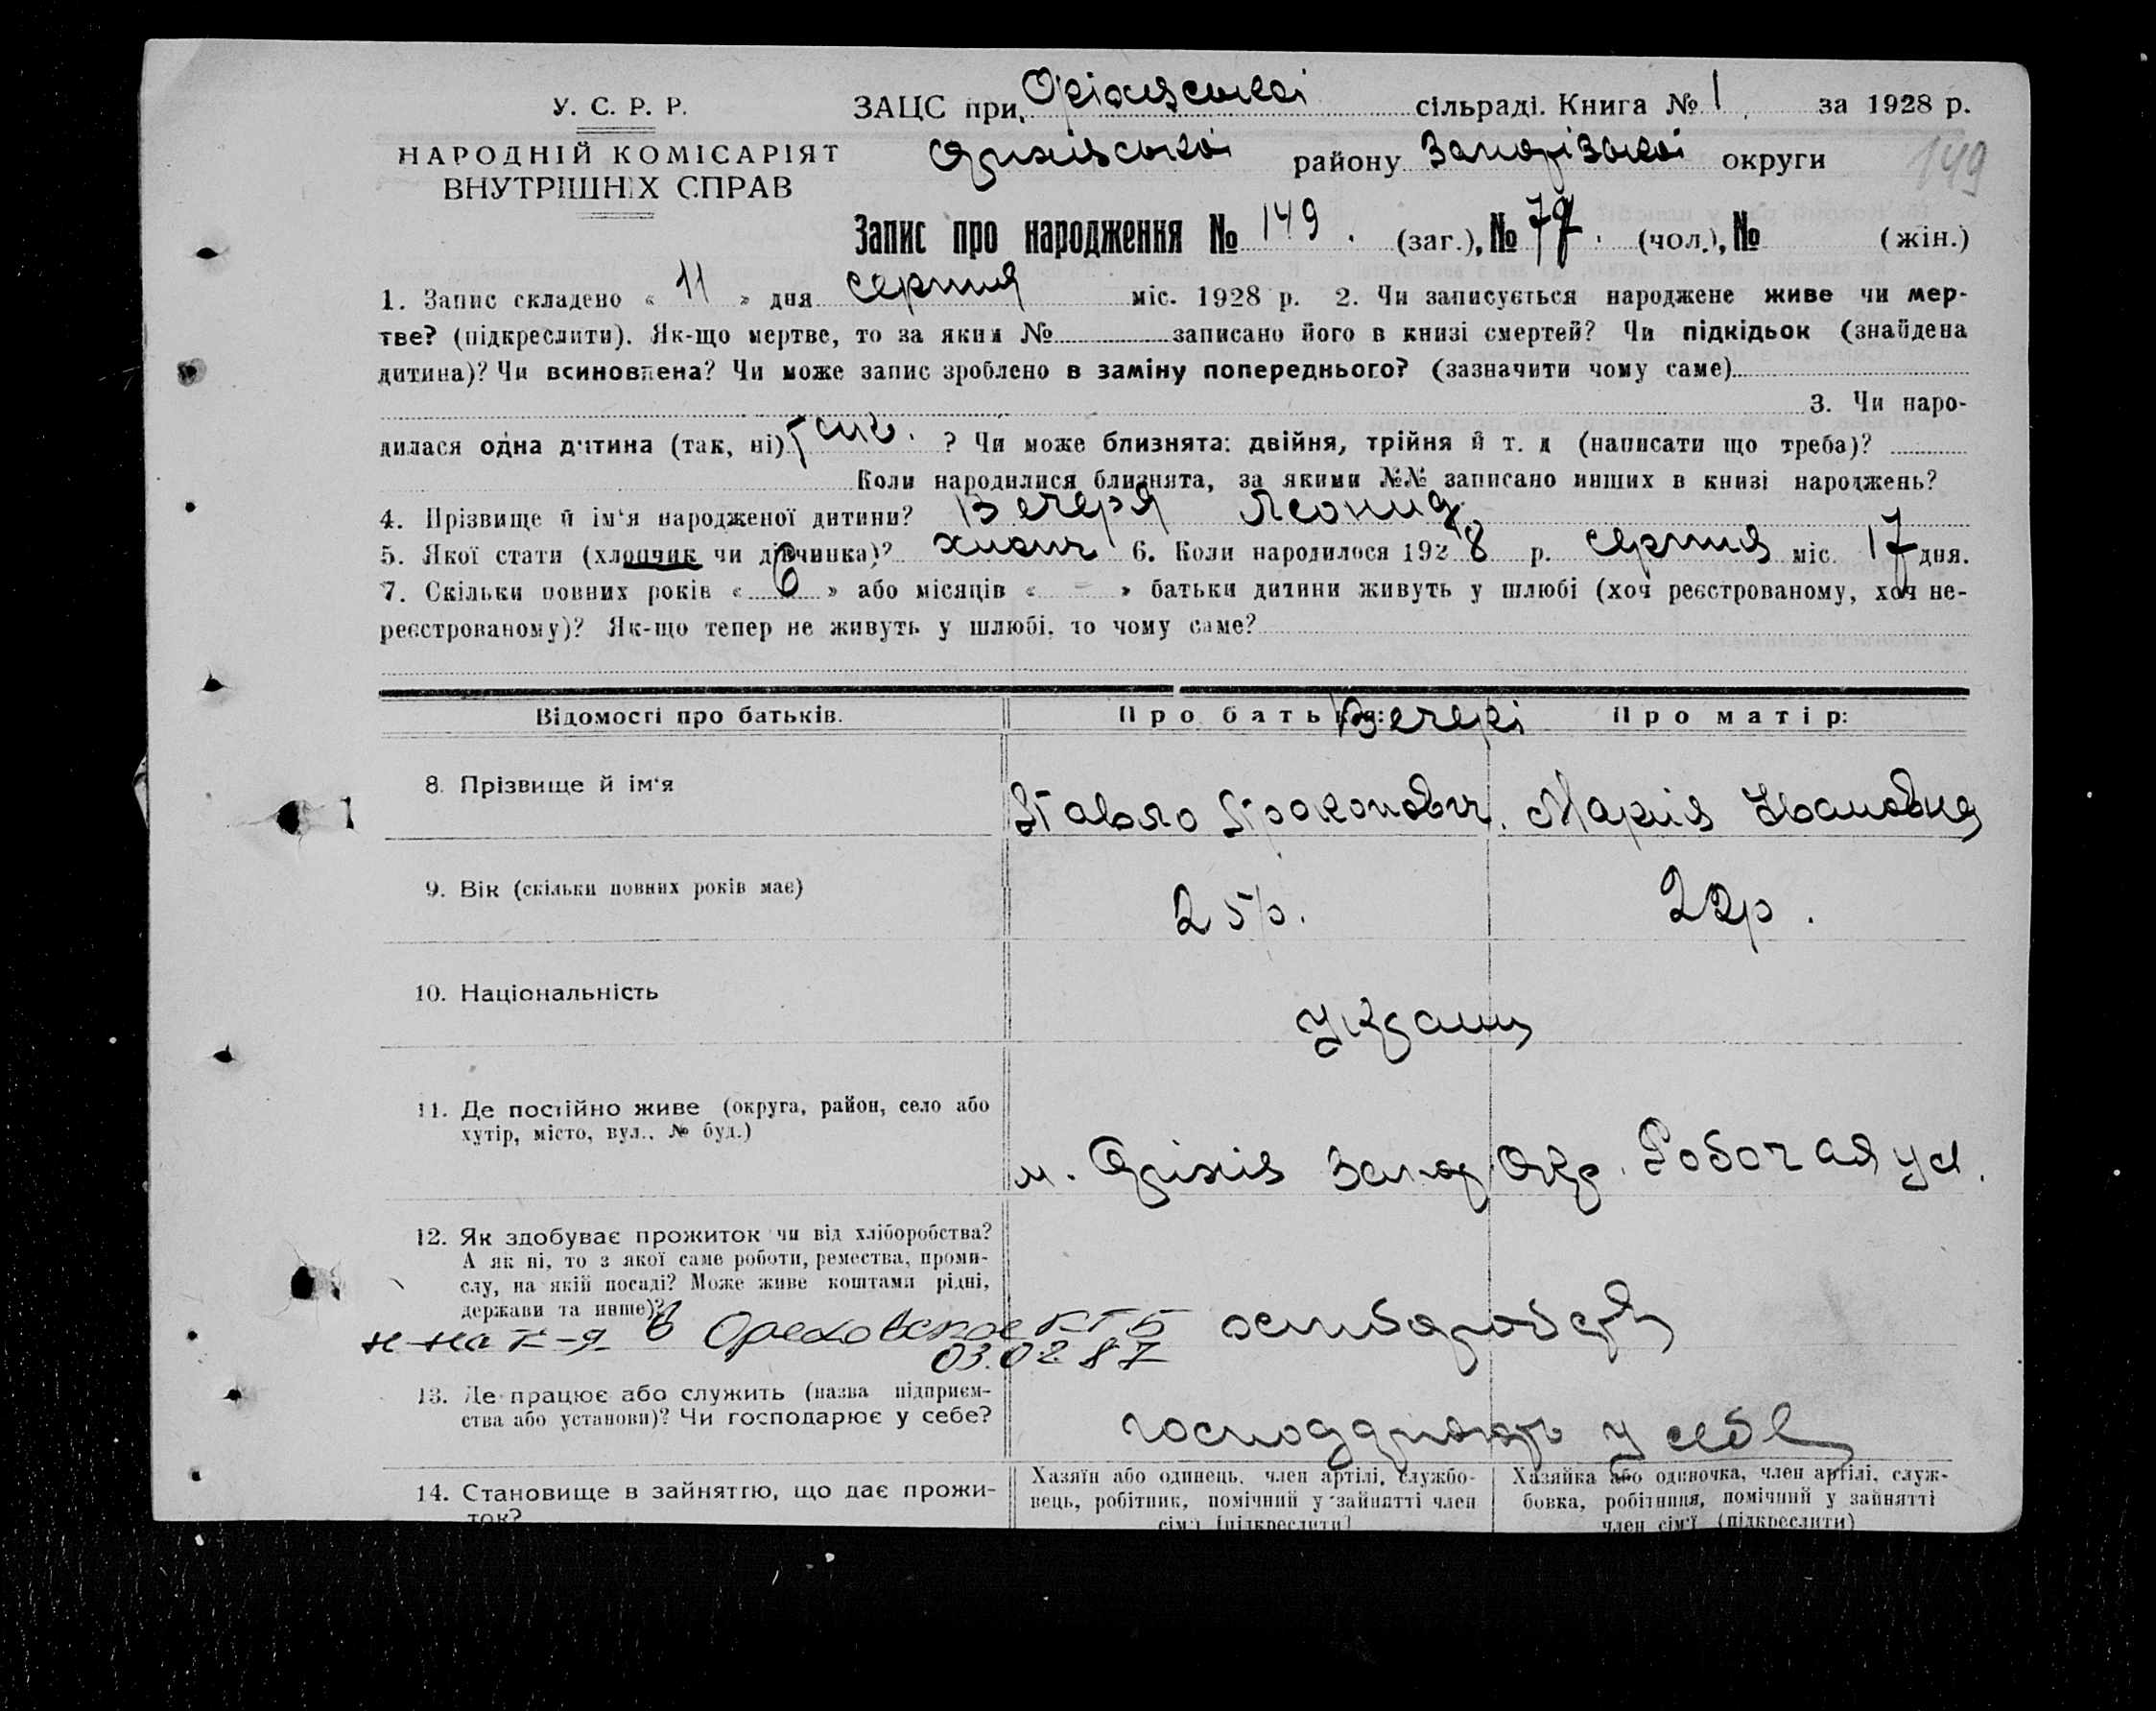 У. С. Р. Р.
НАРОДНІЙ КОМІСАРІЯТ
ВНУТРІШНІХ СПРАВ
ЗАЦС при Оріхівській сільраді. Книга № 1 за 1928 р.
Оріхівської району Запорізької округи
149
Запис про народження № 149. (заг.), № 77. (чол.), № (жін.)
1. Запис складено « 11 » дня серпня міс. 1928 р. 2. Чи записується народжене живе чи мер-
тве? (підкреслити). Як-що мертве, то за яким № записано його в книзі смертей? Чи підкідьок (знайдена
дитина)? Чи всиновлена? Чи може запис зроблено в заміну попереднього? (зазначити чому саме)
3. Чи наро-
дилася одна дитина (так, ні) ? Чи може близнята: двійня, трійня й т. д (написати що треба)?
Коли народилися близнята, за якими №№ записано инших в книзі народжень?
4. Прізвище й ім'я народженої дитини? Вечеря Леонид
5. Якої стати (хлопчик чи дівчинка)? хлопч 6. Коли народилося 1928 р. серпня міс. 17 дня.
7. Скільки повних років « 6 » або місяців « - » батьки дитини живуть у шлюбі (хоч реєстрованому, хоч не-
реєстрованому)? Як-що тепер не живуть у шлюбі, то чому саме?
Відомості про батьків. Про батька: Про матір:
Вечері
8. Прізвище й ім'я Павло Прокопович. Мария Ивановна
9. Вік (скільки повних років має) 25 р. 22 р.
10. Національність Украіни
11. Де постійно живе (округа, район, село або
хутір, місто, вул., № буд.)
м. Оріхів Запор. Окр. Робочая ул.
12. Як здобуває прожиток чи від хліборобства?
А як ні, то з якої саме роботи, ремества, проми-
слу, на якій посаді? Може живе коштами рідні,
держави та инше)?
хлиборобств
в Ореховское
03.02 87
13. Де працює або служить (назва підприєм-
ства або установи)? Чи господарює у себе?
господарюють у себе
14. Становище в зайняттю, що дає прожи-
ток?
Хазяїн або одинець, член артілі, службо-
вець, робітник, помічний у зайнятті член
сім'ї [підкреслити]
Хазяйка або одиночка, член артілі, служ-
бовка, робітниця, помічний у зайнятті
член сім'ї (підкреслити)